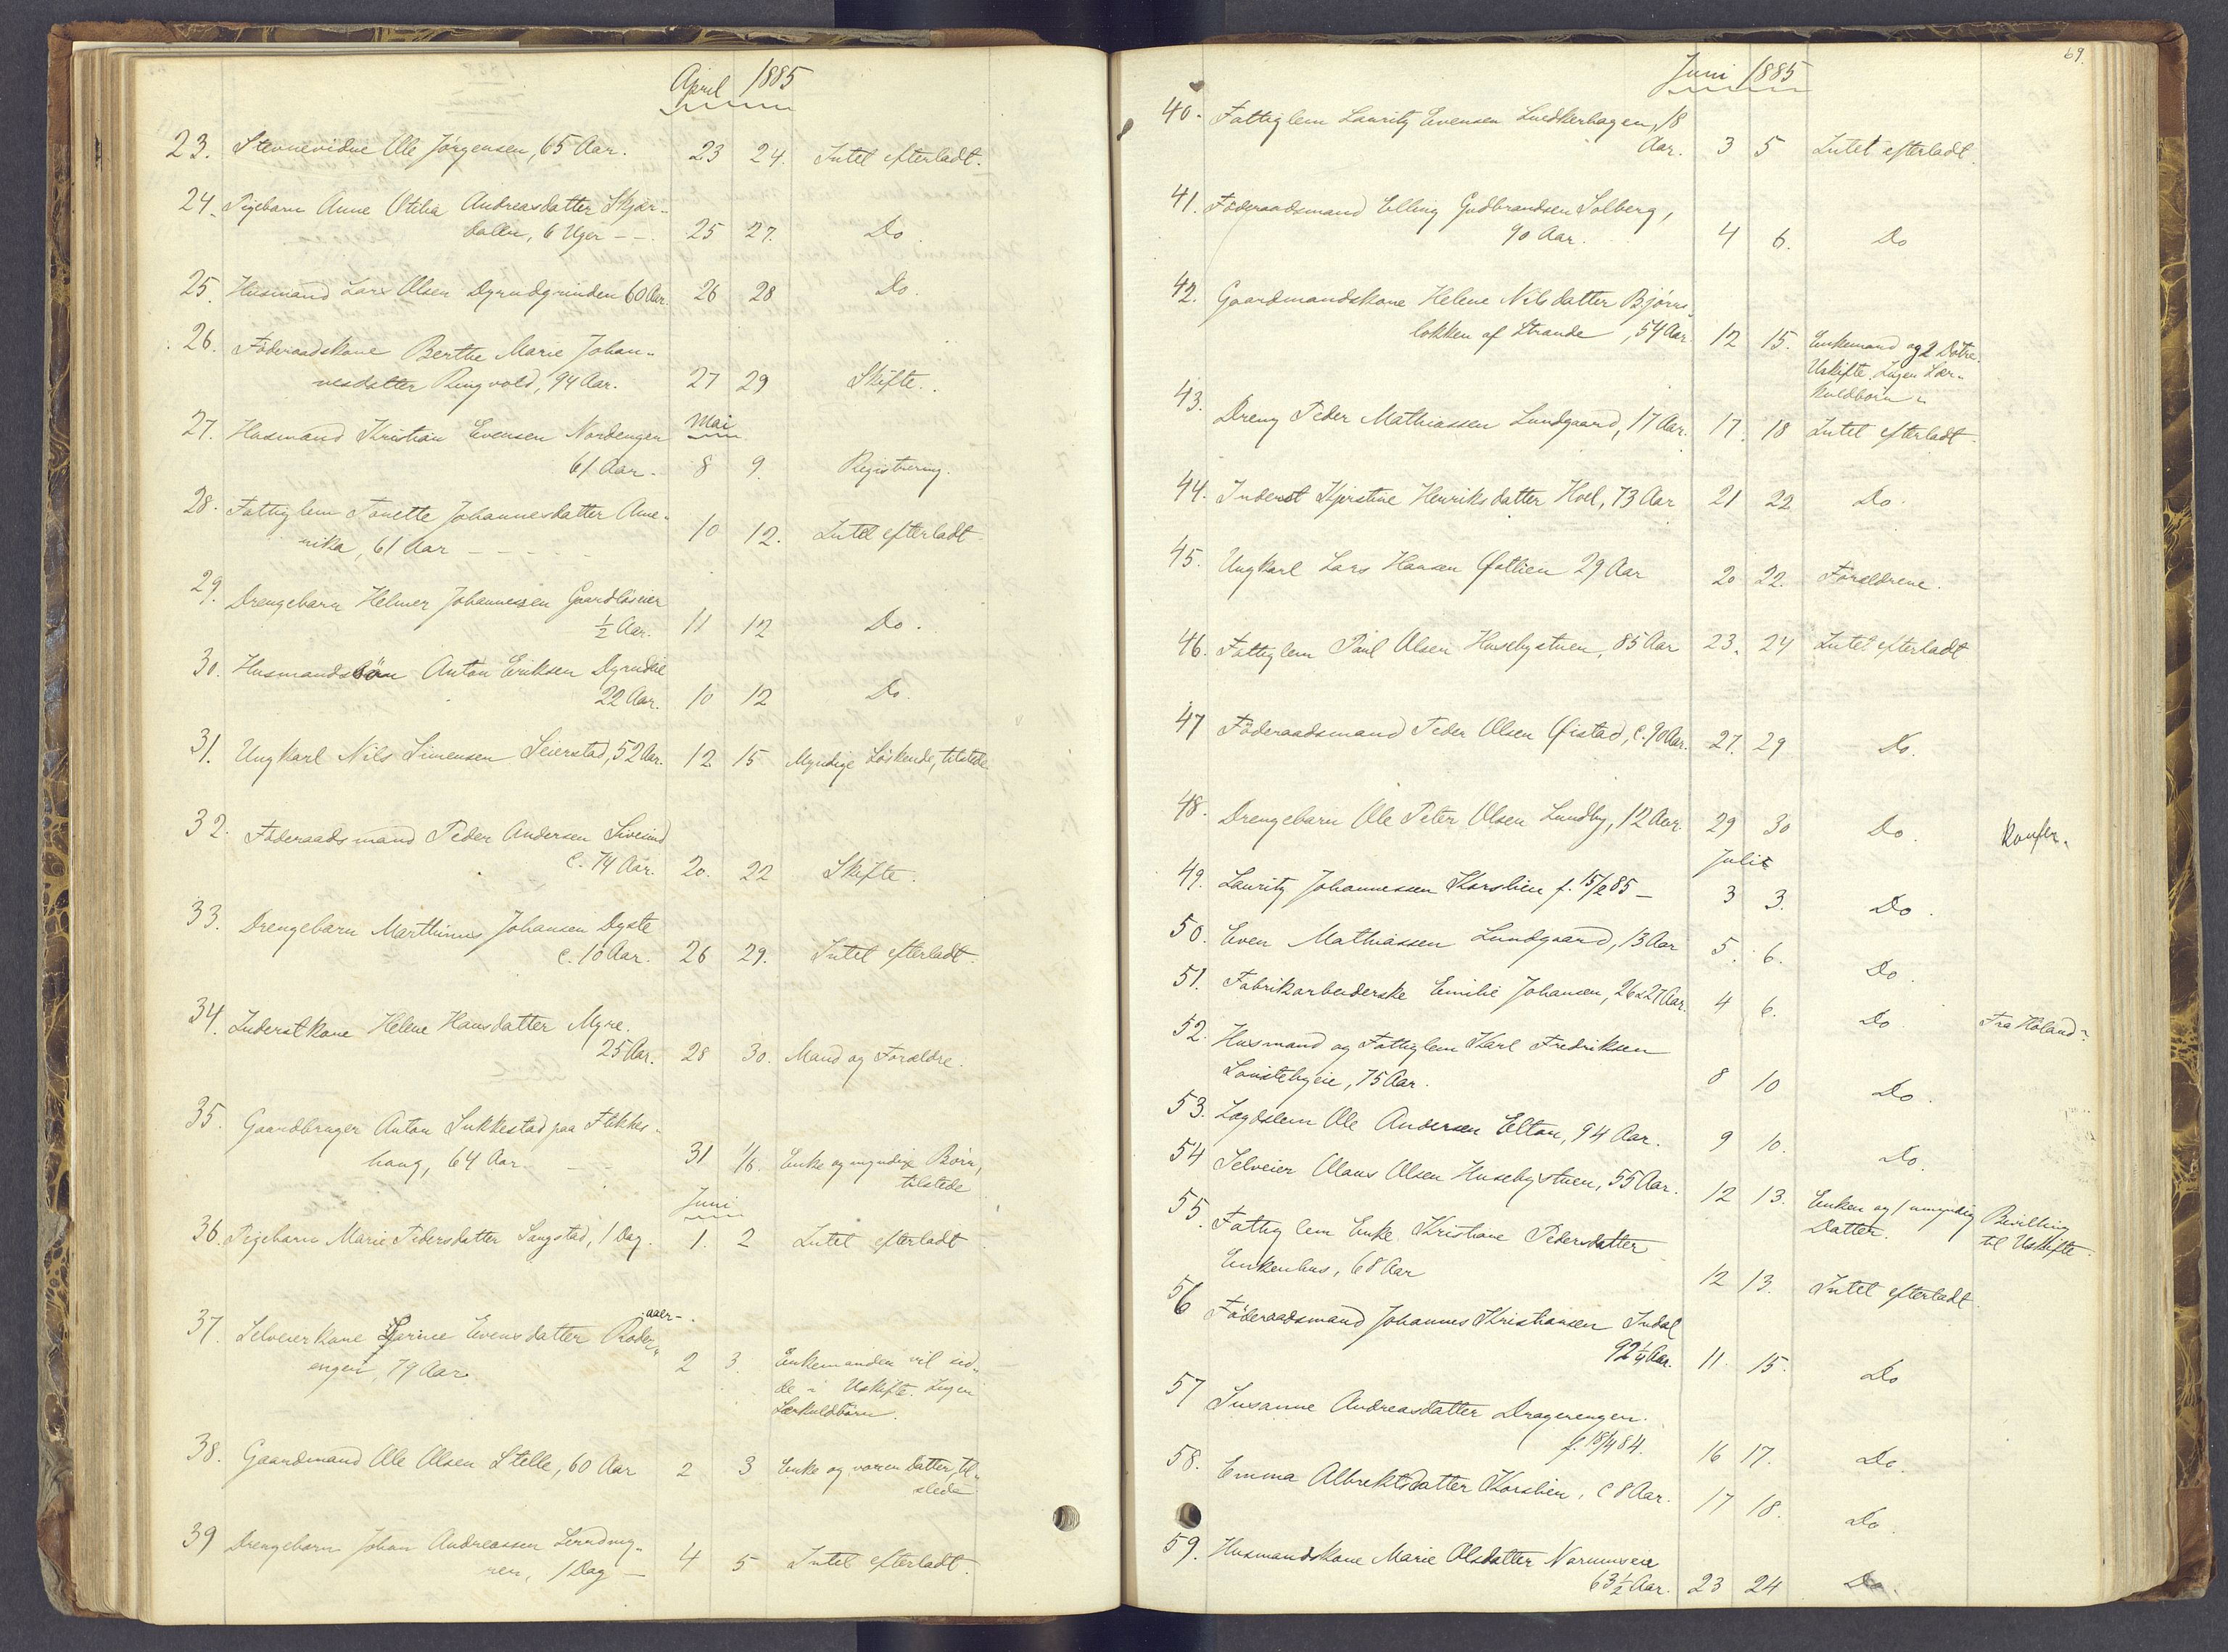 April 1885
23. Stevnevidne Ole Jörgensen, 65 Aar. 23 24. Intet efterladt.
24. Pigebarn Anne Otilia Andreasdatter Skjær-
dalen, 6 Uger -- 25 27. Do
25. Husmand Lars Olsen Dyrudgrinden 60 Aar. 26 28 Do.
26. Föderaadskone Berthe Marie Johan-
nesdatter Ringvold, 94 Aar. 27 29 Skifte.
27. Husmand Kristian Evensen Nordengen Mai
61 Aar. 8 9. Registrering.
28. Fattiglem Tonette Johannesdatter Ame-
rika, 61 Aar ----- 10 12. Intet efterladt
29. Drengebarn Helmer Johannessen Gaardlöseier
½ Aar. 11 12 Do.
30. Husmandsbörn Anton Eriksen Dyrudeie
22 Aar. 10 12 Do.
31. Ungkarl Nils Simensen Seierstad, 52 Aar. 12 15 Myndige Söskende, tilstede
32. Föderaadsmand Peder Andersen Sivesind
C. 74 Aar. 20. 22 Skifte.
33. Drengebarn Marthinus Johansen Dyste
C. 10 Aar. 26 29. Intet efterladt.
34. Inderstkone Helene Hansdatter Myre.
25 Aar. 28 30. Mand og Forældre.
35. Gaardbruger Anton Sukkestad paa Flikkes-
haug, 64 Aar 31 1/6. Enke og myndige Börn,
tilstede
Juni
36. Pigebarn Marie Pedersdatter Sangstad, 1 Dag. 1. 2 Intet efterladt
aaer-
37. Selveierkone Karine Evensdatter Roder-
engen, 79 Aar 2 3. Enkemanden vil sid-
de i Uskifte. Ingen
Særkuldbörn.
38. Gaardmand Ole Olsen Stelle, 60 Aar 2 3 Enke og voxen Datter, til-
stede
39 Drengebarn Johan Andreassen
1 Dag — 4 5 Intet efterladt.
69.
Juni 1885
40. Fattiglem Lauritz Evensen Snedkerhagen, 18
Aar. 3 5 Intet efterladt
41. Föderaadsmand Elling Gudbrandsen Solberg,
90 Aar. 4 6. Do
42. Gaardmandskone Helene Nilsdatter Björns-
løkken af Strande, 54 Aar. 12 15. Enkemand og 2 Døtre.
Uskifte. Ingen Sær-
kuldbörn
43. Dreng Peder Mathiassen Lundgaard, 17 Aar. 17. 18 Intet efterladt
44. Inderst Kjerstine Henriksdatter Hoel, 73 Aar 21 22 Do.
45. Ungkarl Lars Hansen Østlien 29 Aar 20 22. Forældrene.
46. Fattiglem Paul Olsen Husebystuen, 85 Aar 23. 24 Intet efterladt
47 Föderaadsmand Peder Olsen Øistad, C. 90 Aar. 27. 29 Do.
48. Drengebarn Ole Peter Olsen Lundby, 12 Aar. 29 30 Do. Konfer.
Juli
49. Lauritz Johannessen Korslien f. 15/2 85 — 3 3. Do.
50. Even Mathiassen Lundgaard, 13 Aar 5. 6. Do.
51. Fabrikarbeiderske Emilie Johansen, 26 à 27 Aar. 4 6. Do Fra Höland?
52. Husmand og Fattiglem Karl Fredriksen
75 Aar. 8 10 Do.
53. Lægdslem Ole Andersen Elton, 94 Aar. 9 10. Do.
54 Selveier Olaus Olsen Husebystuen, 55 Aar. 12 13. Enken og 1 umyndig Bevilling
Datter. til Uskifte.
55. Fattiglem Enke Kristiane Pedersdatter
Enkenhus, 68 Aar 12 13. Intet efterladt.
56 Föderaadsmand Johannes Kristiansen Indal
92 ¼ Aar. 11. 15. Do
57 Susanne Andreasdatter Dragerengen.
f. 18/4 84. 16 17. Do.
58. Emma Albrektsdatter Korslien, C 8 Aar. 17 18. Do.
59. Husmandskone Marie Olsdatter Narumseie
63 ½ Aar. 23 24 Do.